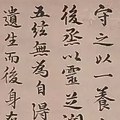 守之以一養
後烝以靈芝潤
五絃無為自得
遺生而後身存